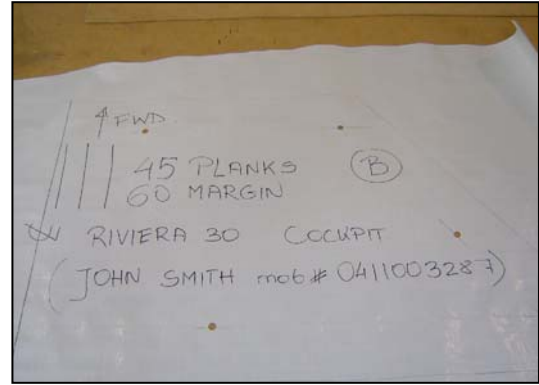 FWD
45 PLANKS B
60 MARGIN
RIVIERA 30 COCKPIT
(JOHN SMITH mob# 0411003287)